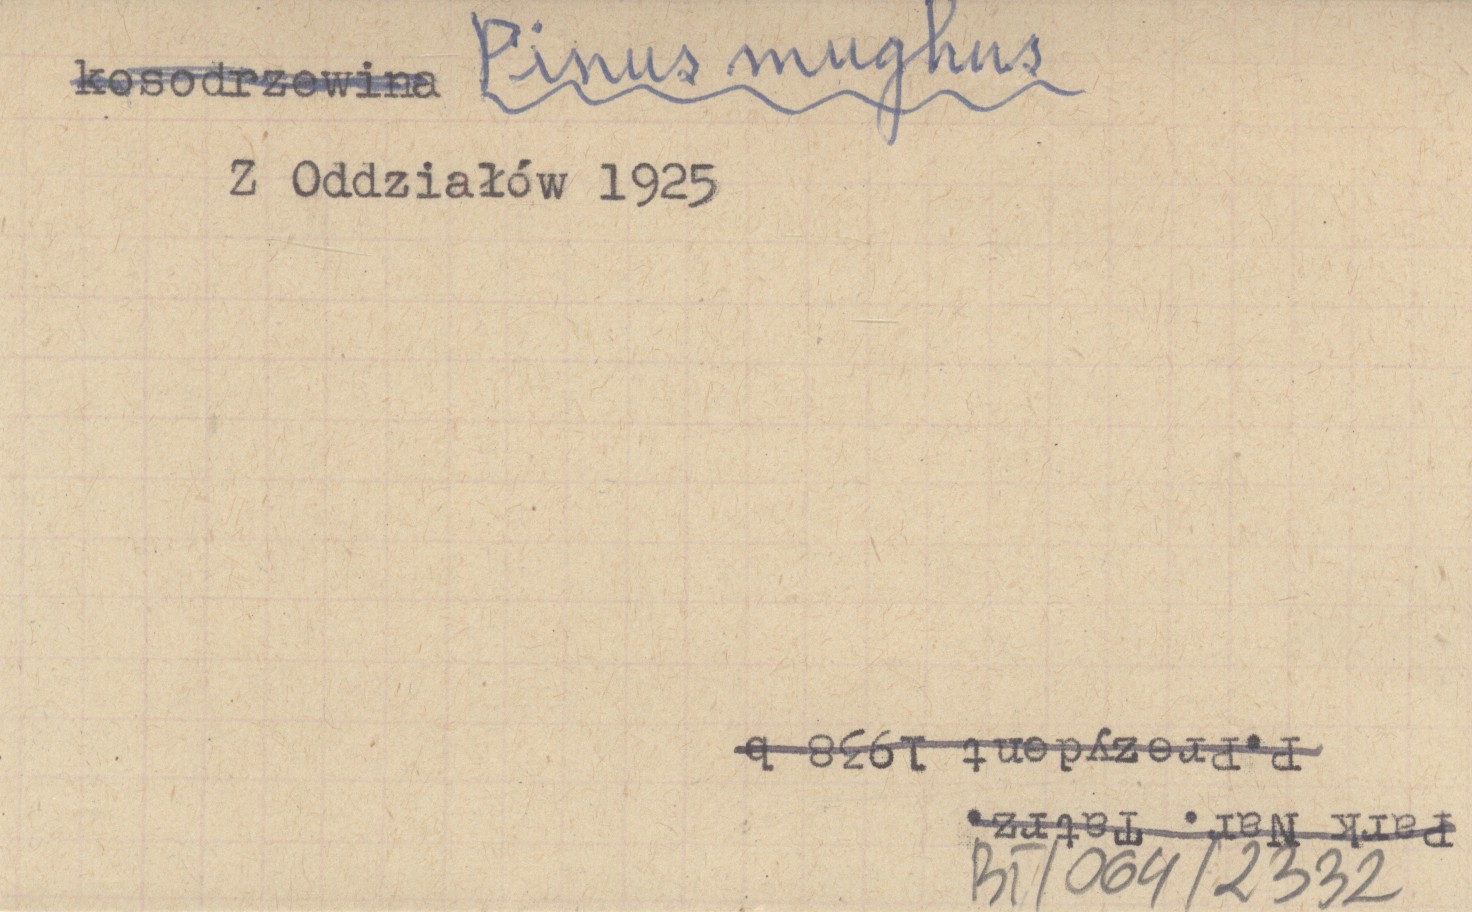 kosodrzewina Pinus mughus
Z Oddziałów 1925
Park Nar. Tatrz.
P.Prezydent 1938 b
BI/064/2332